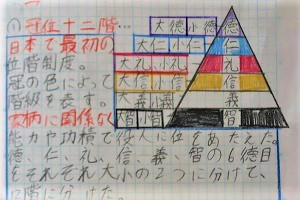 ① 冠位十二階…
日本で最初の
位階制度。
冠の色によって
階級を表す。
家柄に関係なく
能力や功績で役人に位をあたえた。
徳、仁、礼、信、義、智の6徳目
をそれぞれ大小の2つに分けて、
12階に分けた。
大徳 小徳 徳
大仁 小仁 仁
大礼 小礼 礼
大信 小信 信
大義 小義 義
大智 小智 智